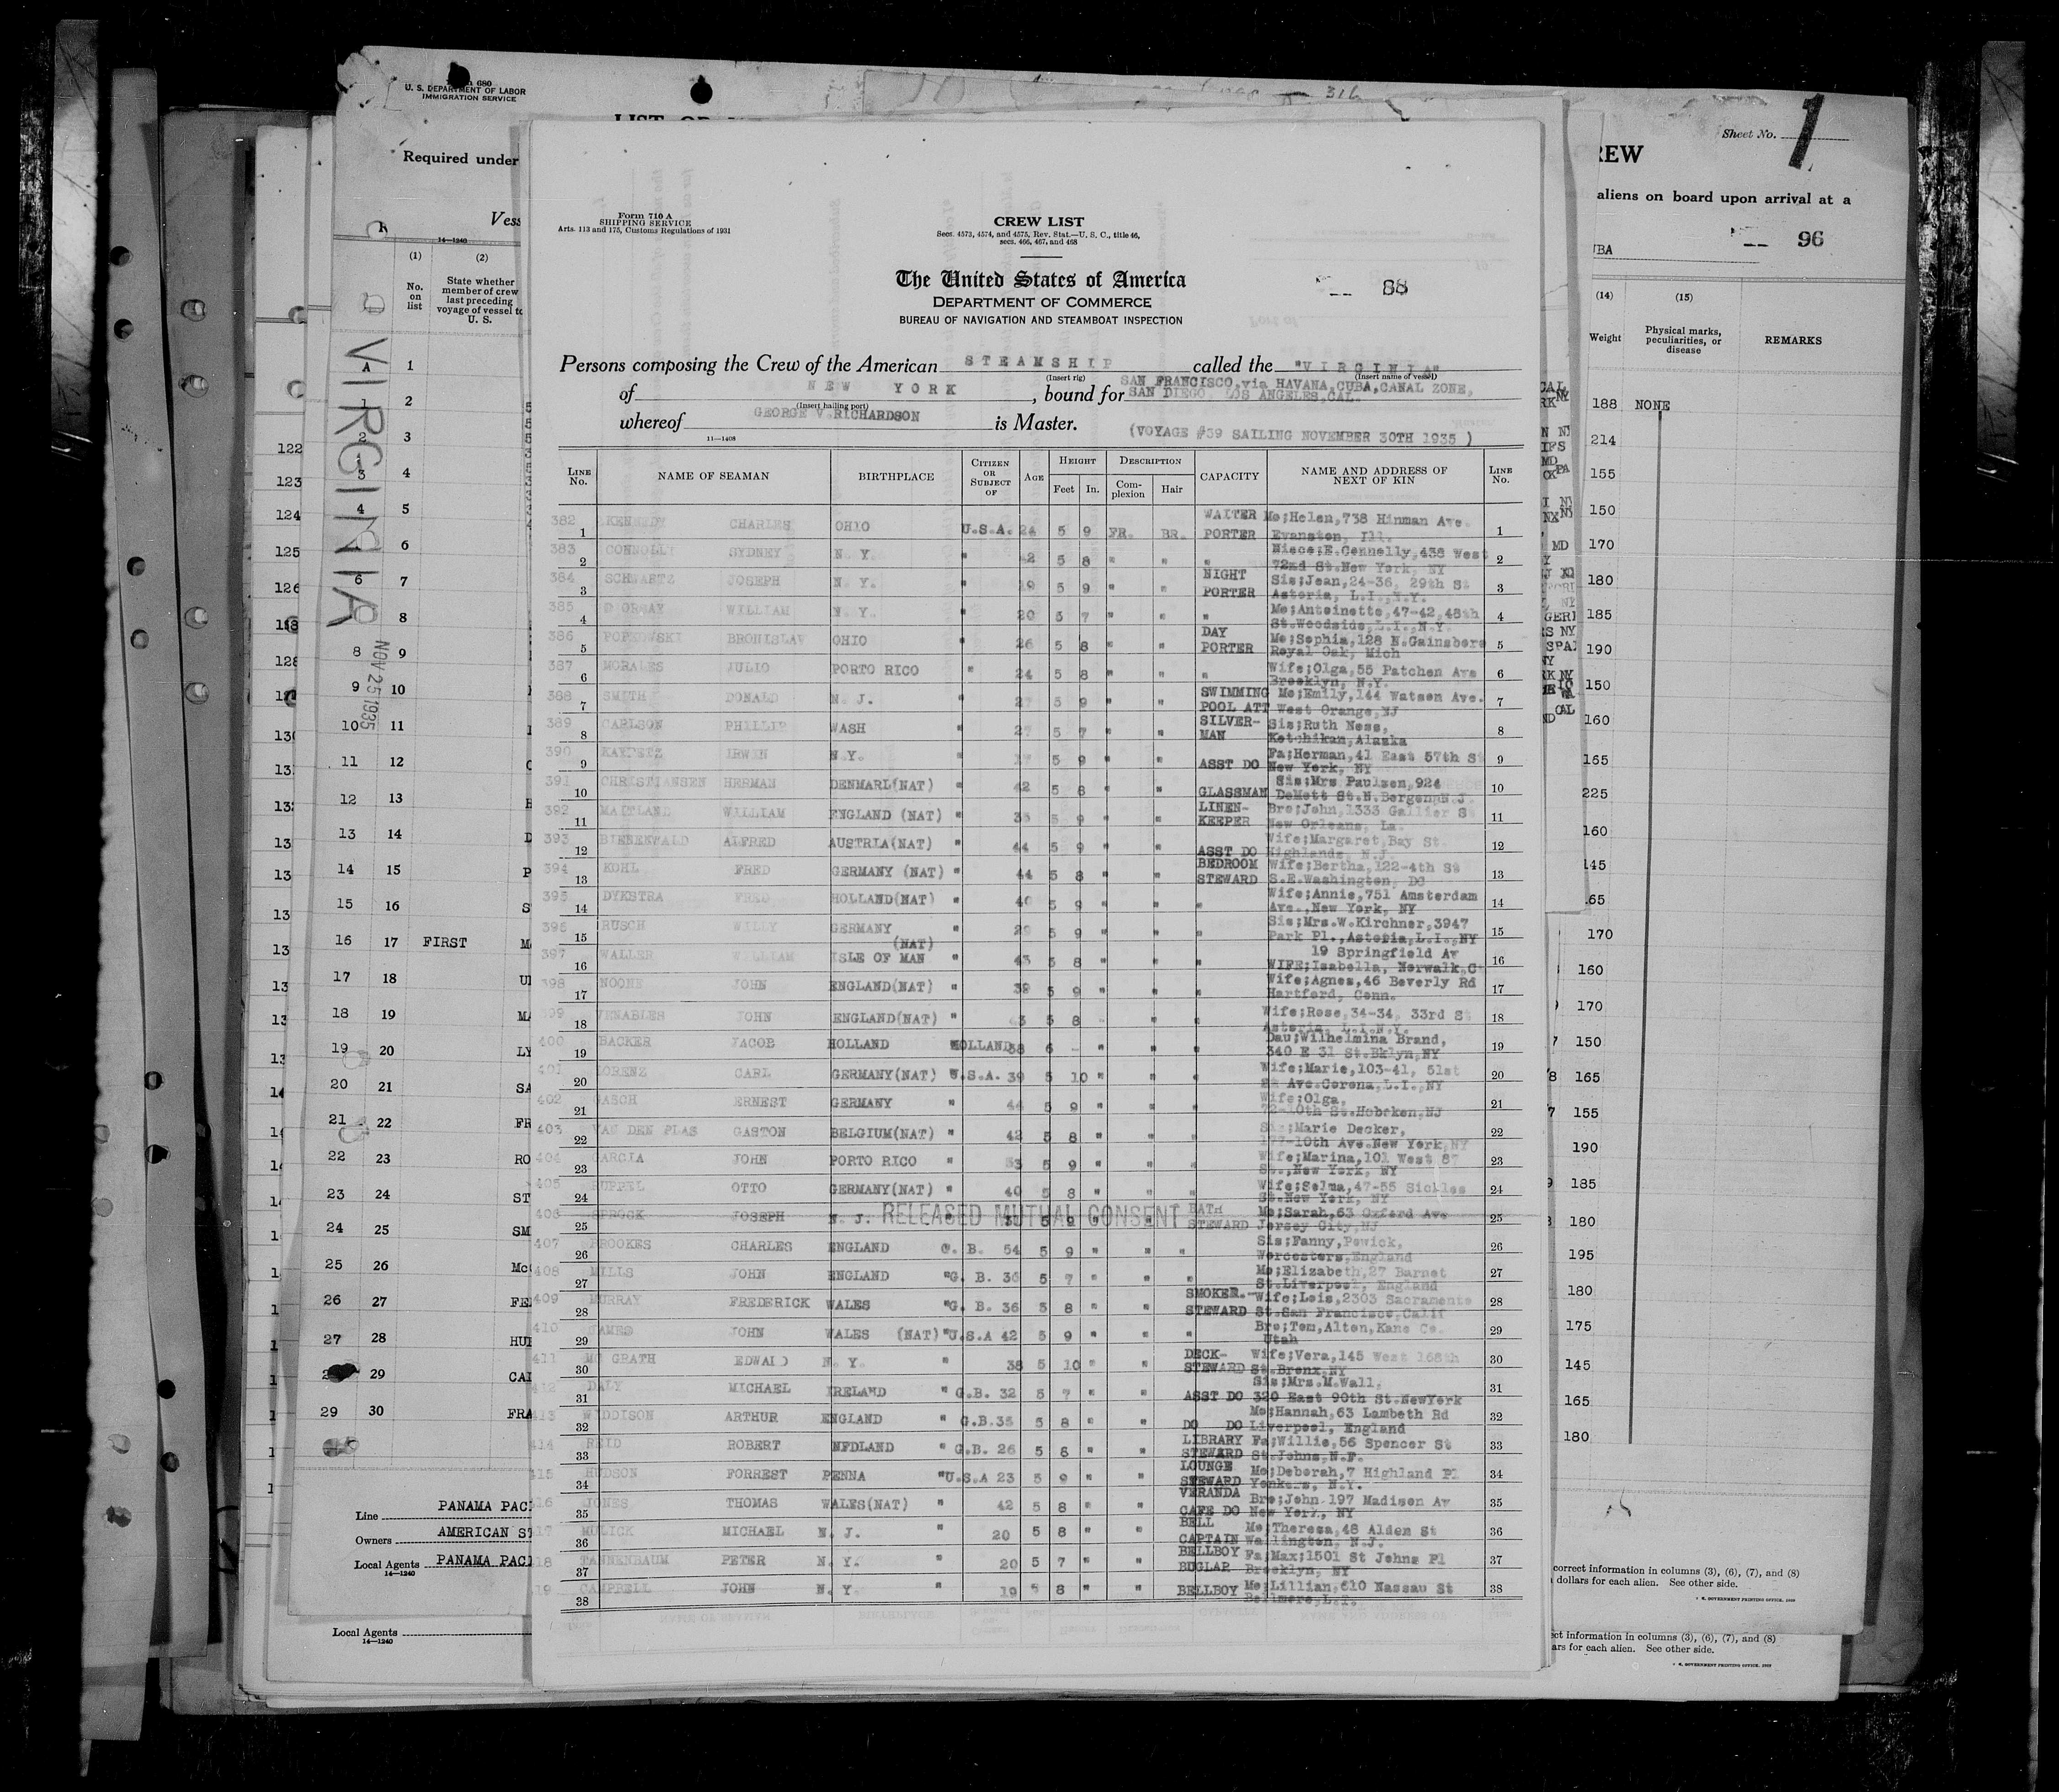 Form 680
U. S. DEPARTMENT OF LABOR
IMMIGRATION SERVICE
Required under
Sheet No. 1
REW
aliens on board upon arrival at a
96
Form 710 A
SHIPPING SERVICE
Arts. 113 and 175, Customs Regulations of 1931
CREW LIST
Secs. 4573, 4574, and 4575, Rev. Stat.—U. S. C., title 46,
secs. 466, 467, and 468
The United States of America
DEPARTMENT OF COMMERCE
BUREAU OF NAVIGATION AND STEAMBOAT INSPECTION
88
Persons composing the Crew of the American STEAMSHIP called the "VIRGINIA"
(Insert rig) (Insert name of vessel)
of NEW YORK, bound for SAN FRANCISCO, via HAVANA, CUBA, CANAL ZONE,
SAN DIEGO, LOS ANGELES, CAL.
(Insert hailing port)
whereof GEORGE V. RICHARDSON is Master.
11—1408
(VOYAGE #39 SAILING NOVEMBER 30TH 1935 )
LINE No. NAME OF SEAMAN BIRTHPLACE CITIZEN OR SUBJECT OF AGE HEIGHT Feet In. DESCRIPTION Complexion Hair CAPACITY NAME AND ADDRESS OF NEXT OF KIN LINE No.
382 1 KENNEDY CHARLES OHIO U.S.A. 24 5 9 FR. BR. WAITER PORTER Mo;Helen,738 Hinman Ave. Evanston, Ill. 1
383 2 CONNOLLY SYDNEY N. Y. " 42 5 8 " " " Niece;E.Connelly,438 West 72nd St.New York, NY 2
384 3 SCHWARTZ JOSEPH N. Y. " 19 5 9 " " NIGHT PORTER Sis;Jean,24-36, 29th St Astoria, L.I.,N.Y. 3
385 4 D ORSAY WILLIAM N. Y. " 20 5 7 " " " Mo;Antoinette,47-42,48th St.Woodside,L.I.,N.Y. 4
386 5 POPKOWSKI BRONISLAV OHIO " 26 5 8 " " DAY PORTER Mo;Sophia,128 N.Gainsboro Royal Oak, Mich 5
387 6 MORALES JULIO PORTO RICO " 24 5 8 " " " Wife;Olga,55 Patchen Ave Brooklyn, N.Y. 6
388 7 SMITH DONALD N. J. " 5 9 " " SWIMMING POOL ATT Mo;Emily,144 Watson Ave. West Orange,NJ 7
389 8 CARLSON PHILLIP WASH " 27 5 7 " " SILVER-MAN Sis;Ruth Ness, Ketchikan,Alaska 8
390 9 IRWIN N.Y. " 5 9 " " ASST DO Fa;Herman,41 East 57th St New York, NY 9
391 10 CHRISTIANSEN HERMAN DENMARL(NAT) " 42 5 8 " " GLASSMAN Sis;Mrs Paulsen,924 DeMott St.N.Bergen N.J. 10
392 11 MAITLAND WILLIAM ENGLAND (NAT) " 5 9 " " LINEN-KEEPER Bro;John,1333 Gallier St New Orleans, La. 11
393 12 BIEBENWALD ALFRED AUSTRIA(NAT) " 44 5 9 " " ASST DO Wife;Margaret,Bay St. Highlands, N.J. 12
394 13 KOHL FRED GERMANY (NAT) " 44 5 8 " " BEDROOM STEWARD Wife;Bertha,122-4th St S.E.Washington, DC 13
395 14 DYKSTRA FRED HOLLAND(NAT) " 40 5 9 " " " Wife;Annie,751 Amsterdam Ave.,New York, NY 14
396 15 RUSCH WILLY GERMANY (NAT) " 29 5 9 " " " Sis;Mrs.W.Kirchner,3947 Park Pl.,Astoria,L.I.,NY 15
397 16 WALLER WILLIAM ISLE OF MAN " 43 5 8 " " " 19 Springfield Av WIFE;Isabella, Norwalk,C 16
398 17 NOONE JOHN ENGLAND(NAT) " 39 5 9 " " " Wife;Agnes,46 Beverly Rd Hartford, Conn. 17
399 18 VENABLES JOHN ENGLAND(NAT) " 5 8 " " Wife;Rose,34-34, 33rd St Astoria, L.I.N.Y. 18
400 19 BACKER JACOB HOLLAND HOLLAND 38 6 - " " " Dau;Wilhelmina Brand, 340 E 31 St.Bklyn,NY 19
401 20 LORENZ CARL GERMANY(NAT) U.S.A. 39 5 10 " " " Wife;Marie,103-41, 51st Ave.Corona,L.I.,NY 20
402 21 GASCH ERNEST GERMANY " 44 5 9 " " " Wife;Olga, 72-10th St.Hoboken,NJ 21
403 22 VAN DEN PLAS GASTON BELGIUM(NAT) " 42 5 8 " " " Marie Decker, 177-10th Ave.New York,NY 22
404 23 GARCIA JOHN PORTO RICO " 33 5 9 " " " Wife;Marina,101 West 87 St.,New York, NY 23
405 24 OTTO GERMANY(NAT) " 40 5 8 " " " Wife;Selma,47-55 Sickles St.New York, NY 24
RELEASED MUTUAL CONSENT
406 25 JOSEPH N. J. 5 9 BATH STEWARD Mo;Sarah,63 Oxford Ave Jersey City,NJ 25
407 26 BROOKES CHARLES ENGLAND G. B. 54 5 9 " " " Sis;Fanny,Powick, Worcesters,England 26
408 27 MILLS JOHN ENGLAND "G. B. 36 5 7 " " " Mo;Elizabeth,27 Barnet St.Liverpool, England 27
409 28 MURRAY FREDERICK WALES "G. B. 36 5 8 " " SMOKER STEWARD Wife;Lois,2303 Sacramento St.San Francisco,Calif 28
410 29 JAMES JOHN WALES (NAT) "U.S.A 42 5 9 " " " Bro;Tom,Alton,Kane Co. Utah 29
411 30 MC GRATH EDWARD N. Y. " 38 5 10 " " DECK-STEWARD Wife;Vera,145 West 168th St.Bronx,NY 30
412 31 DALY MICHAEL IRELAND " G.B. 32 5 7 " " ASST DO Sis;Mrs.M.Wall, 320 East 90th St.NewYork 31
413 32 WIDDISON ARTHUR ENGLAND " G.B.35 5 8 " " DO DO Mo;Hannah,63 Lambeth Rd Liverpool, England 32
414 33 REID ROBERT NFDLAND " G.B. 26 5 8 " " LIBRARY STEWARD Fa;Willie,56 Spencer St St.Johns,N.F. 33
415 34 HUDSON FORREST PENNA "U.S.A 23 5 9 " " LOUNGE STEWARD Mo;Deborah,7 Highland Pl Yonkers, N.Y. 34
416 35 JONES THOMAS WALES(NAT) " 42 5 8 " " VERANDA CAFE DO Bro;John 197 Madison Av New York, NY 35
417 36 MULICK MICHAEL N. J. " 20 5 8 " " BELL CAPTAIN Mo;Theresa,48 Alden St Wallington, N.J. 36
418 37 TANNENBAUM PETER N. Y. " 20 5 7 " " BELLBOY BUGLAR Fa;Max;1501 St Johns Pl Brooklyn, NY 37
419 38 CAMPBELL JOHN N. Y. " 19 5 8 " " BELLBOY Mo;Lillian,610 Nassau St Bellmore,L.I. 38
VIRGINIA
NOV 25 1935
(1) (2)
No. on list
State whether member of crew last preceding voyage of vessel to U. S.
17 FIRST
Line PANAMA PAC
Owners AMERICAN ST
Local Agents PANAMA PAC
14—1240
Local Agents
14—1240
(14) (15)
Weight Physical marks, peculiarities, or disease REMARKS
188 NONE
214
155
150
170
180
185
190
150
160
165
225
160
145
165
170
160
170
150
165
155
190
185
180
195
180
175
145
165
180
correct information in columns (3), (6), (7), and (8)
dollars for each alien. See other side.
U. S. GOVERNMENT PRINTING OFFICE
ct information in columns (3), (6), (7), and (8)
ars for each alien. See other side.
U. S. GOVERNMENT PRINTING OFFICE